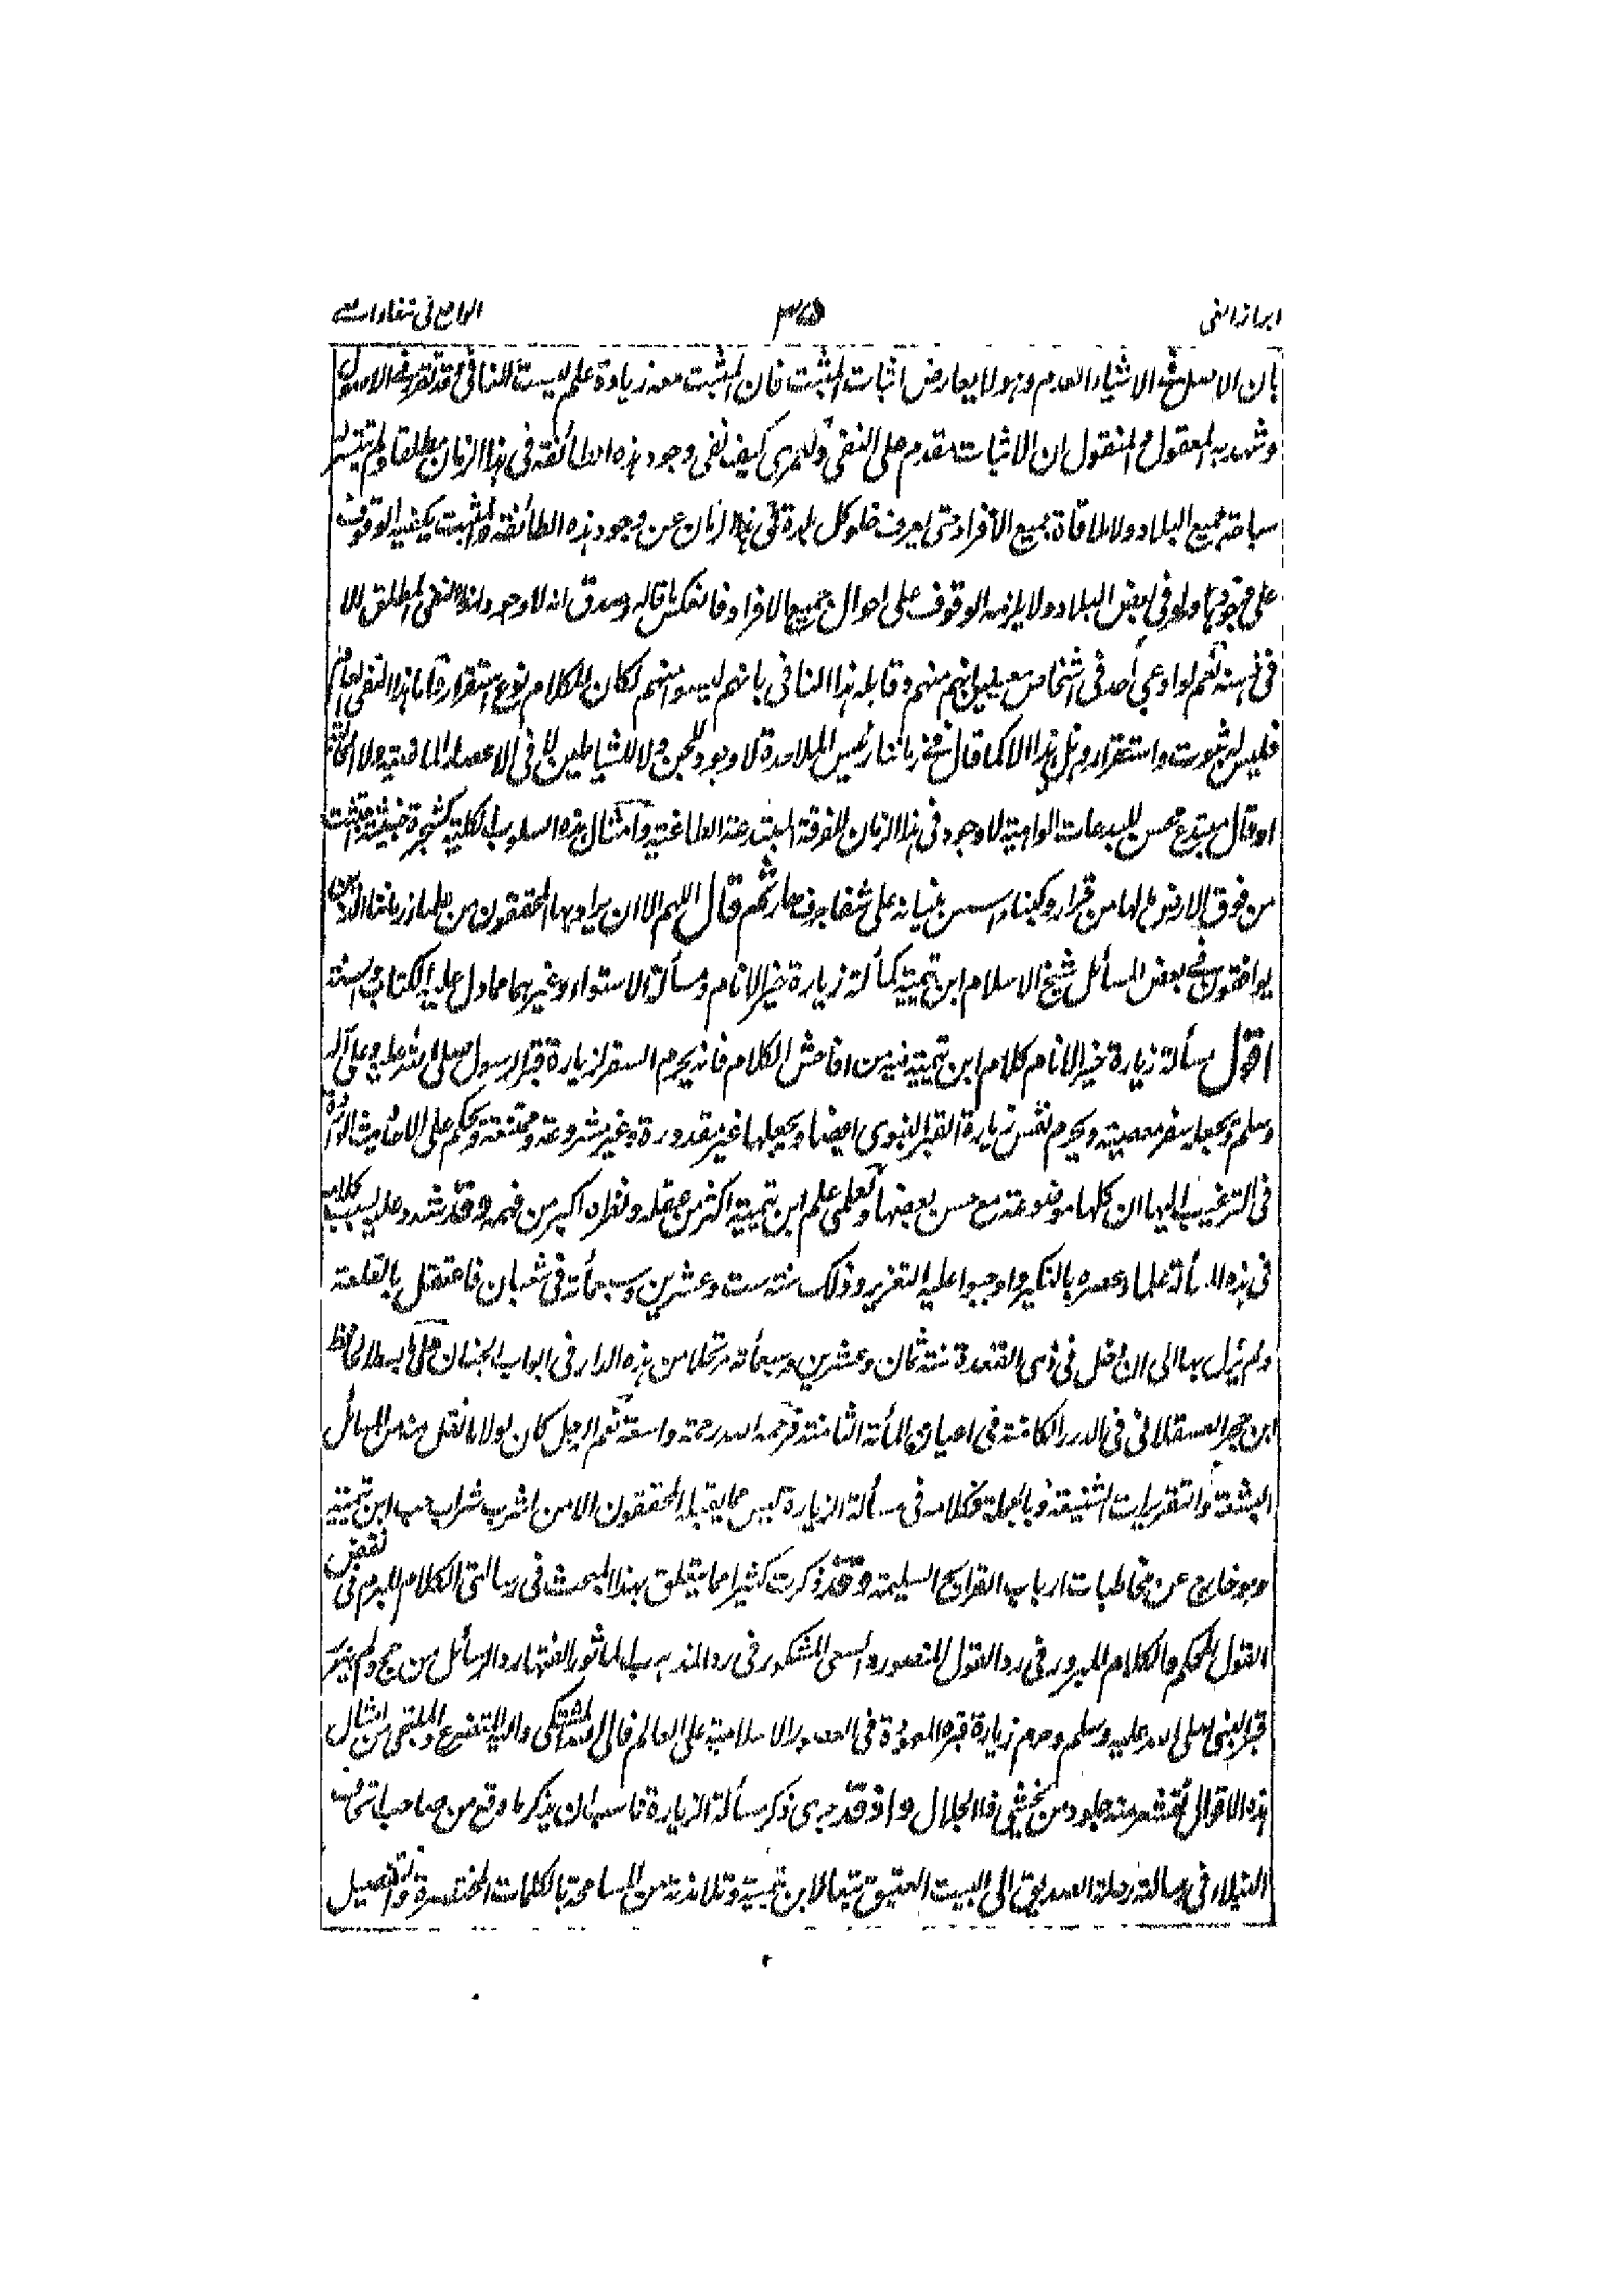 ابراز الغي ٣٥ الواقع في شفاء العي
بان الاصل في الاشياء العدم وهو لا يعارض اثبات المثبت فان المثبت معه زيادة علم ليست للنافي وقد تقرر في الاصول
وشهد به المعقول والمنقول ان الاثبات مقدم على النفي ولعمري كيف نفى وجود هذه الطائفة في هذا الزمان مطلقا ولم تتيسر له
سياحة جميع البلاد ولا ملاقاة جميع الافراد حتى يعرف خلو كل بلدة في هذا الزمان عن وجود هذه الطائفة والمثبت يكفيه الوقوف
على وجودها ولو في بعض البلاد ولا يلزمه الوقوف على احوال جميع الافراد فانعكس ما قاله وصدق انه لا وجود لهذا النفي المطلق الا
في ذهنه نعم لو ادعى أحد في اشخاص معينين انهم منهم وقابله هذا النافي بانهم ليسوا منهم لكان للكلام نوع استقرار وأما هذا النفي العام
فليس له ثبوت واستقرار وهل هذا الا كما قال في زماننا رئيس الملاحدة لا وجود للجن ولا للشياطين لا في الاعصار الماضية ولا الحالية
او قال مبتدع محسن للبدعات الواهية لا وجود في هذا الزمان للفرقة المبتدعة الطاغية وامثال هذه السلوب الكلية كشجرة خبيثة اجتثت
من فوق الارض ما لها من قرار وكبناء اسس بنيانه على شفا جرف هار ثم قال اللهم الا ان يراد بها المحققون من علماء زماننا الذين
يوافقون في بعض المسائل شيخ الاسلام ابن تيمية كمسألة زيارة خير الانام ومسألة الاستواء وغيرهما مما دل عليه الكتاب والسنة
اقول مسألة زيارة خير الانام كلام ابن تيمية فيه من افاحش الكلام فانه يحرم السفر لزيارة قبر الرسول صلى الله عليه وعلى آله
وسلم ويجعله سفر معصية ويحرم نفس زيارة القبر النبوي ايضا ويجعلها غير مقدورة وغير مشروعة وممتنعة ويحكم على الاحاديث الواردة
في الترغيب اليها ان كلها موضوعة مع حسن بعضها ولعلمي علم ابن تيمية اكثر من عقله ونظره اكبر من فهمه وقد شدد عليه بسبب كلامه
في هذه المسألة علماء عصره بالنكير واوجبوا عليه التعزير وذلك سنة ست وعشرين وسبعمائة في شعبان فاعتقل بالقلعة
ولم يزل بها الى ان دخل في ذي القعدة سنة ثمان وعشرين وسبعمائة مرتحلا من هذه الدار في ابواب الجنان على ما بسطه الحافظ
ابن حجر العسقلاني في الدرر الكامنة في اعيان المائة الثامنة فرحمه الله رحمة واسعة نعم الرجل كان لولا ما نقل عنه من المسائل
البشعة والتقريرات الشنيعة وبالجملة فكلامه في مسألة الزيارة ليس مما يقبله المحققون الا من اشرب شراب حب ابن تيمية
وهو خارج عن مخاطبات ارباب القرائح السليمة وقد ذكرت كثيرا مما يتعلق بهذا المبحث في رسالتي الكلام المبرم في نقض
القول المحكم والكلام المبرور في رد القول المنصور والسعي المشكور في رد المذهب الماثور الفتها ردا لرسائل من حج ولم يزر
قبر النبي صلى الله عليه وسلم وحرم زيارة قبره المعهودة في العصور الاسلامية على العالم فالى الله المشتكى واليه التضرع والملتجى من امثال
هذه الاقوال تقشعر منه جلود من يخشى ذا الجلال واذ قد جرى ذكر مسألة الزيارة ناسب ان يذكر ما وقع من صاحب اتحاف
النبلاء في رسالته رحلة الصديق الى البيت العتيق تبعا لابن تيمية وتلامذته من المسامحة بالكلمات المختصرة والتفصيل